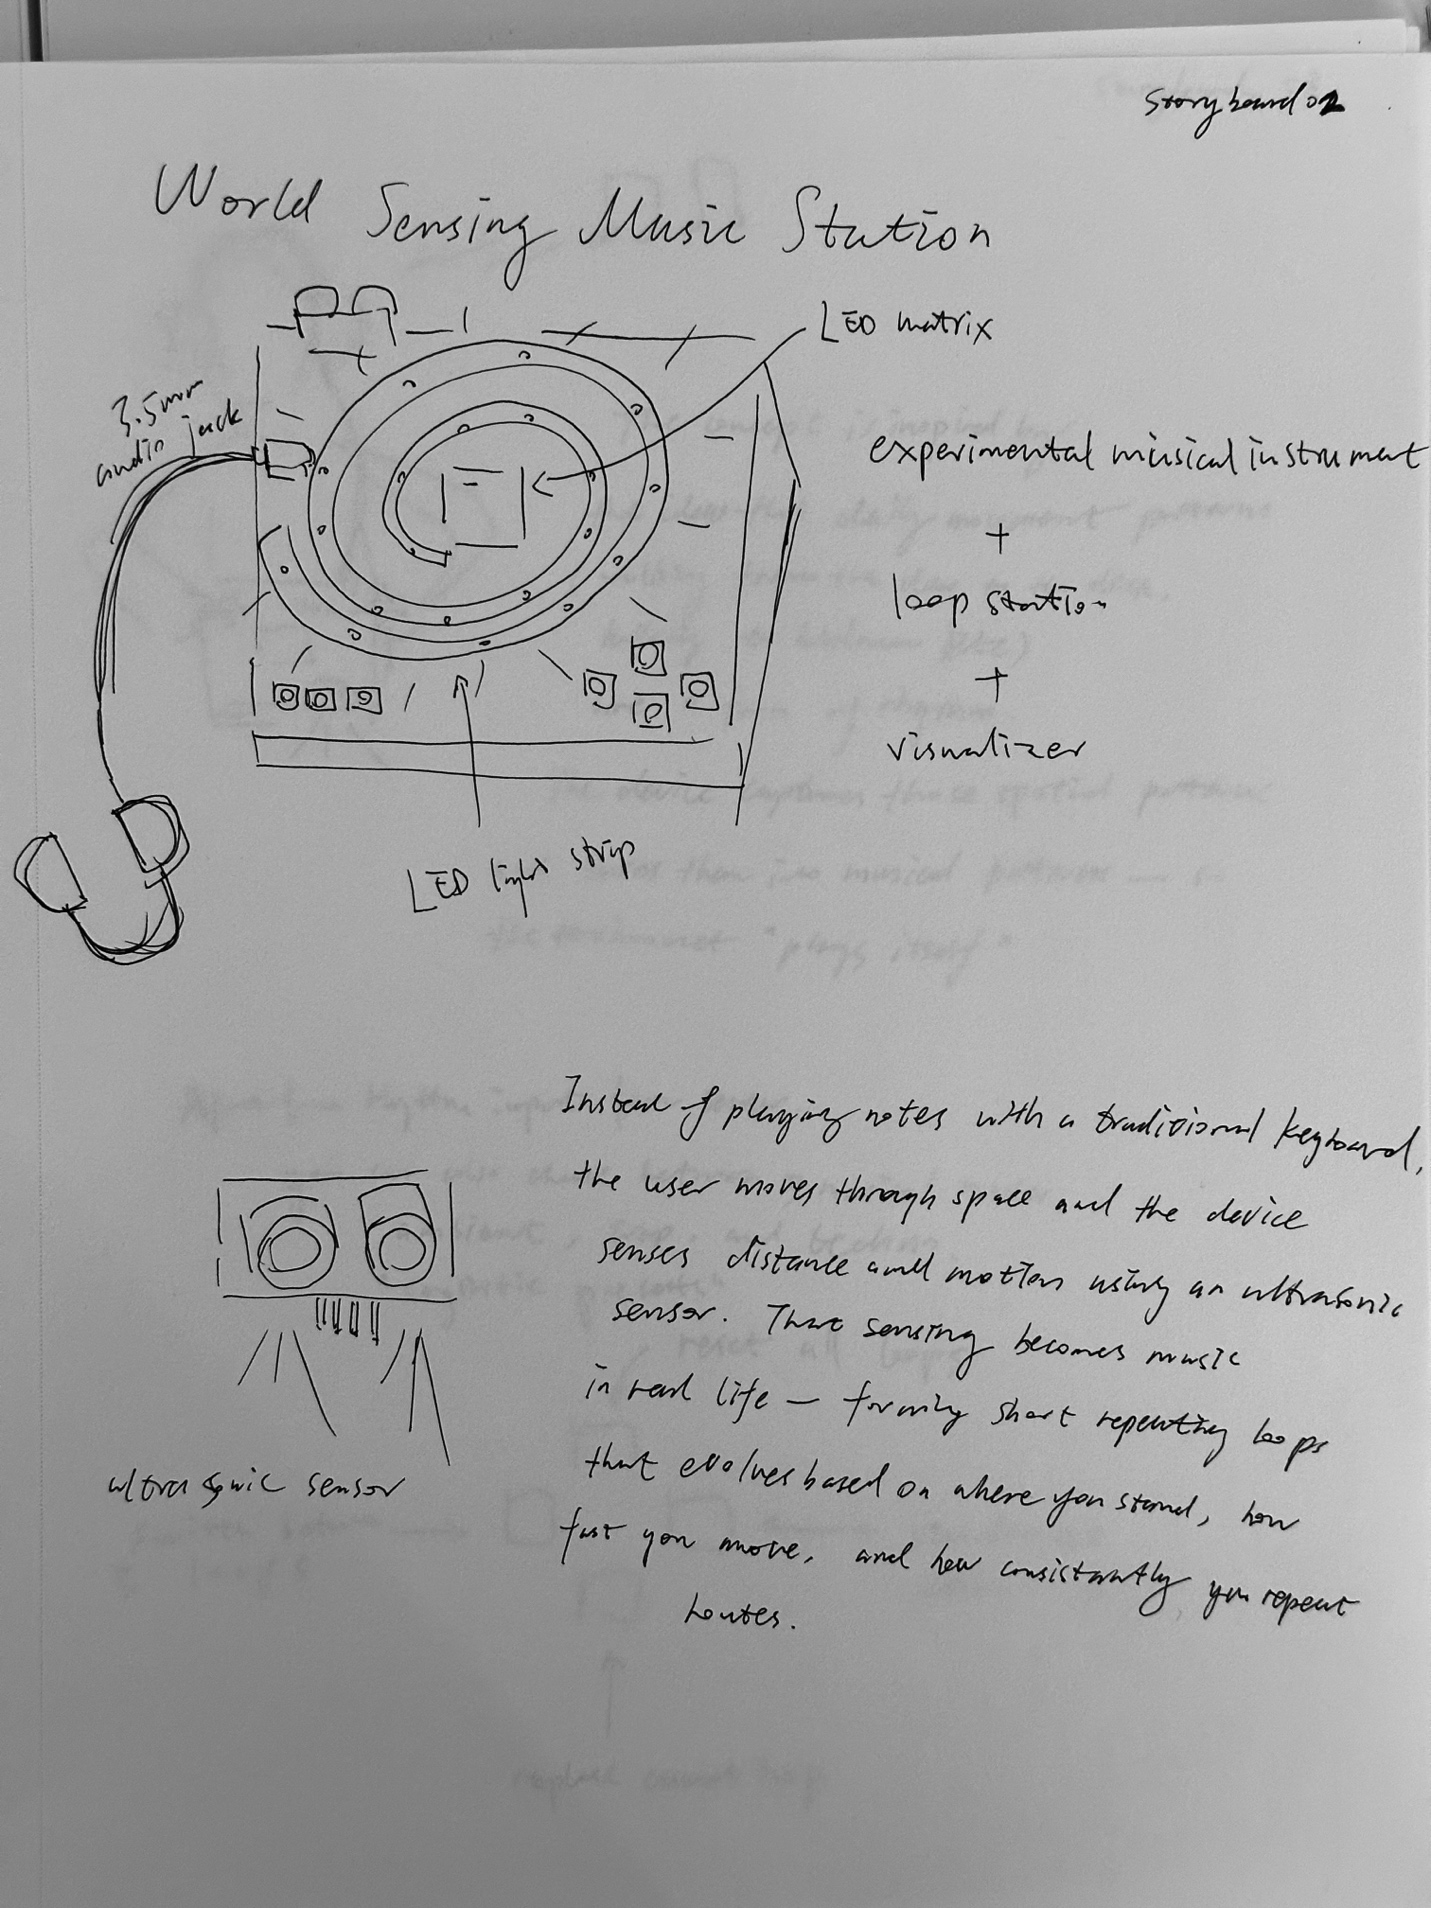 Storyboard 02
World Sensing Music Station
LED matrix
3.5mm
audio jack
experimental musical instrument
+
loop station
+
visualizer
LED light strip
Instead of playing notes with a traditional keyboard,
the user moves through space and the device
senses distance and motion using an ultrasonic
sensor. That sensing becomes music
in real life — forming short repeating loops
that evolves based on where you stand, how
fast you move, and how consistantly you repeat
routes.
ultrasonic sensor